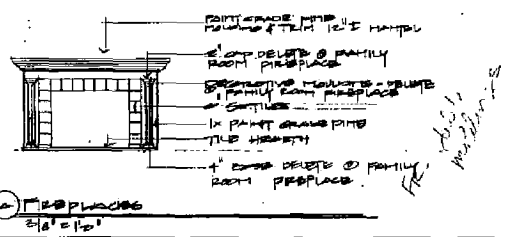 PAINT GRADE PINE
MOULDING & TRIM 12"± MANTEL
2" CAP DELETE @ FAMILY
ROOM FIREPLACE
DECORATIVE MOULDING - DELETE
@ FAMILY ROOM FIREPLACE
6" SQ TILES
1x PAINT GRADE PINE
TILE HEARTH
4" BASE DELETE @ FAMILY
ROOM FIREPLACE
FIREPLACES
3/8" = 1'-0"